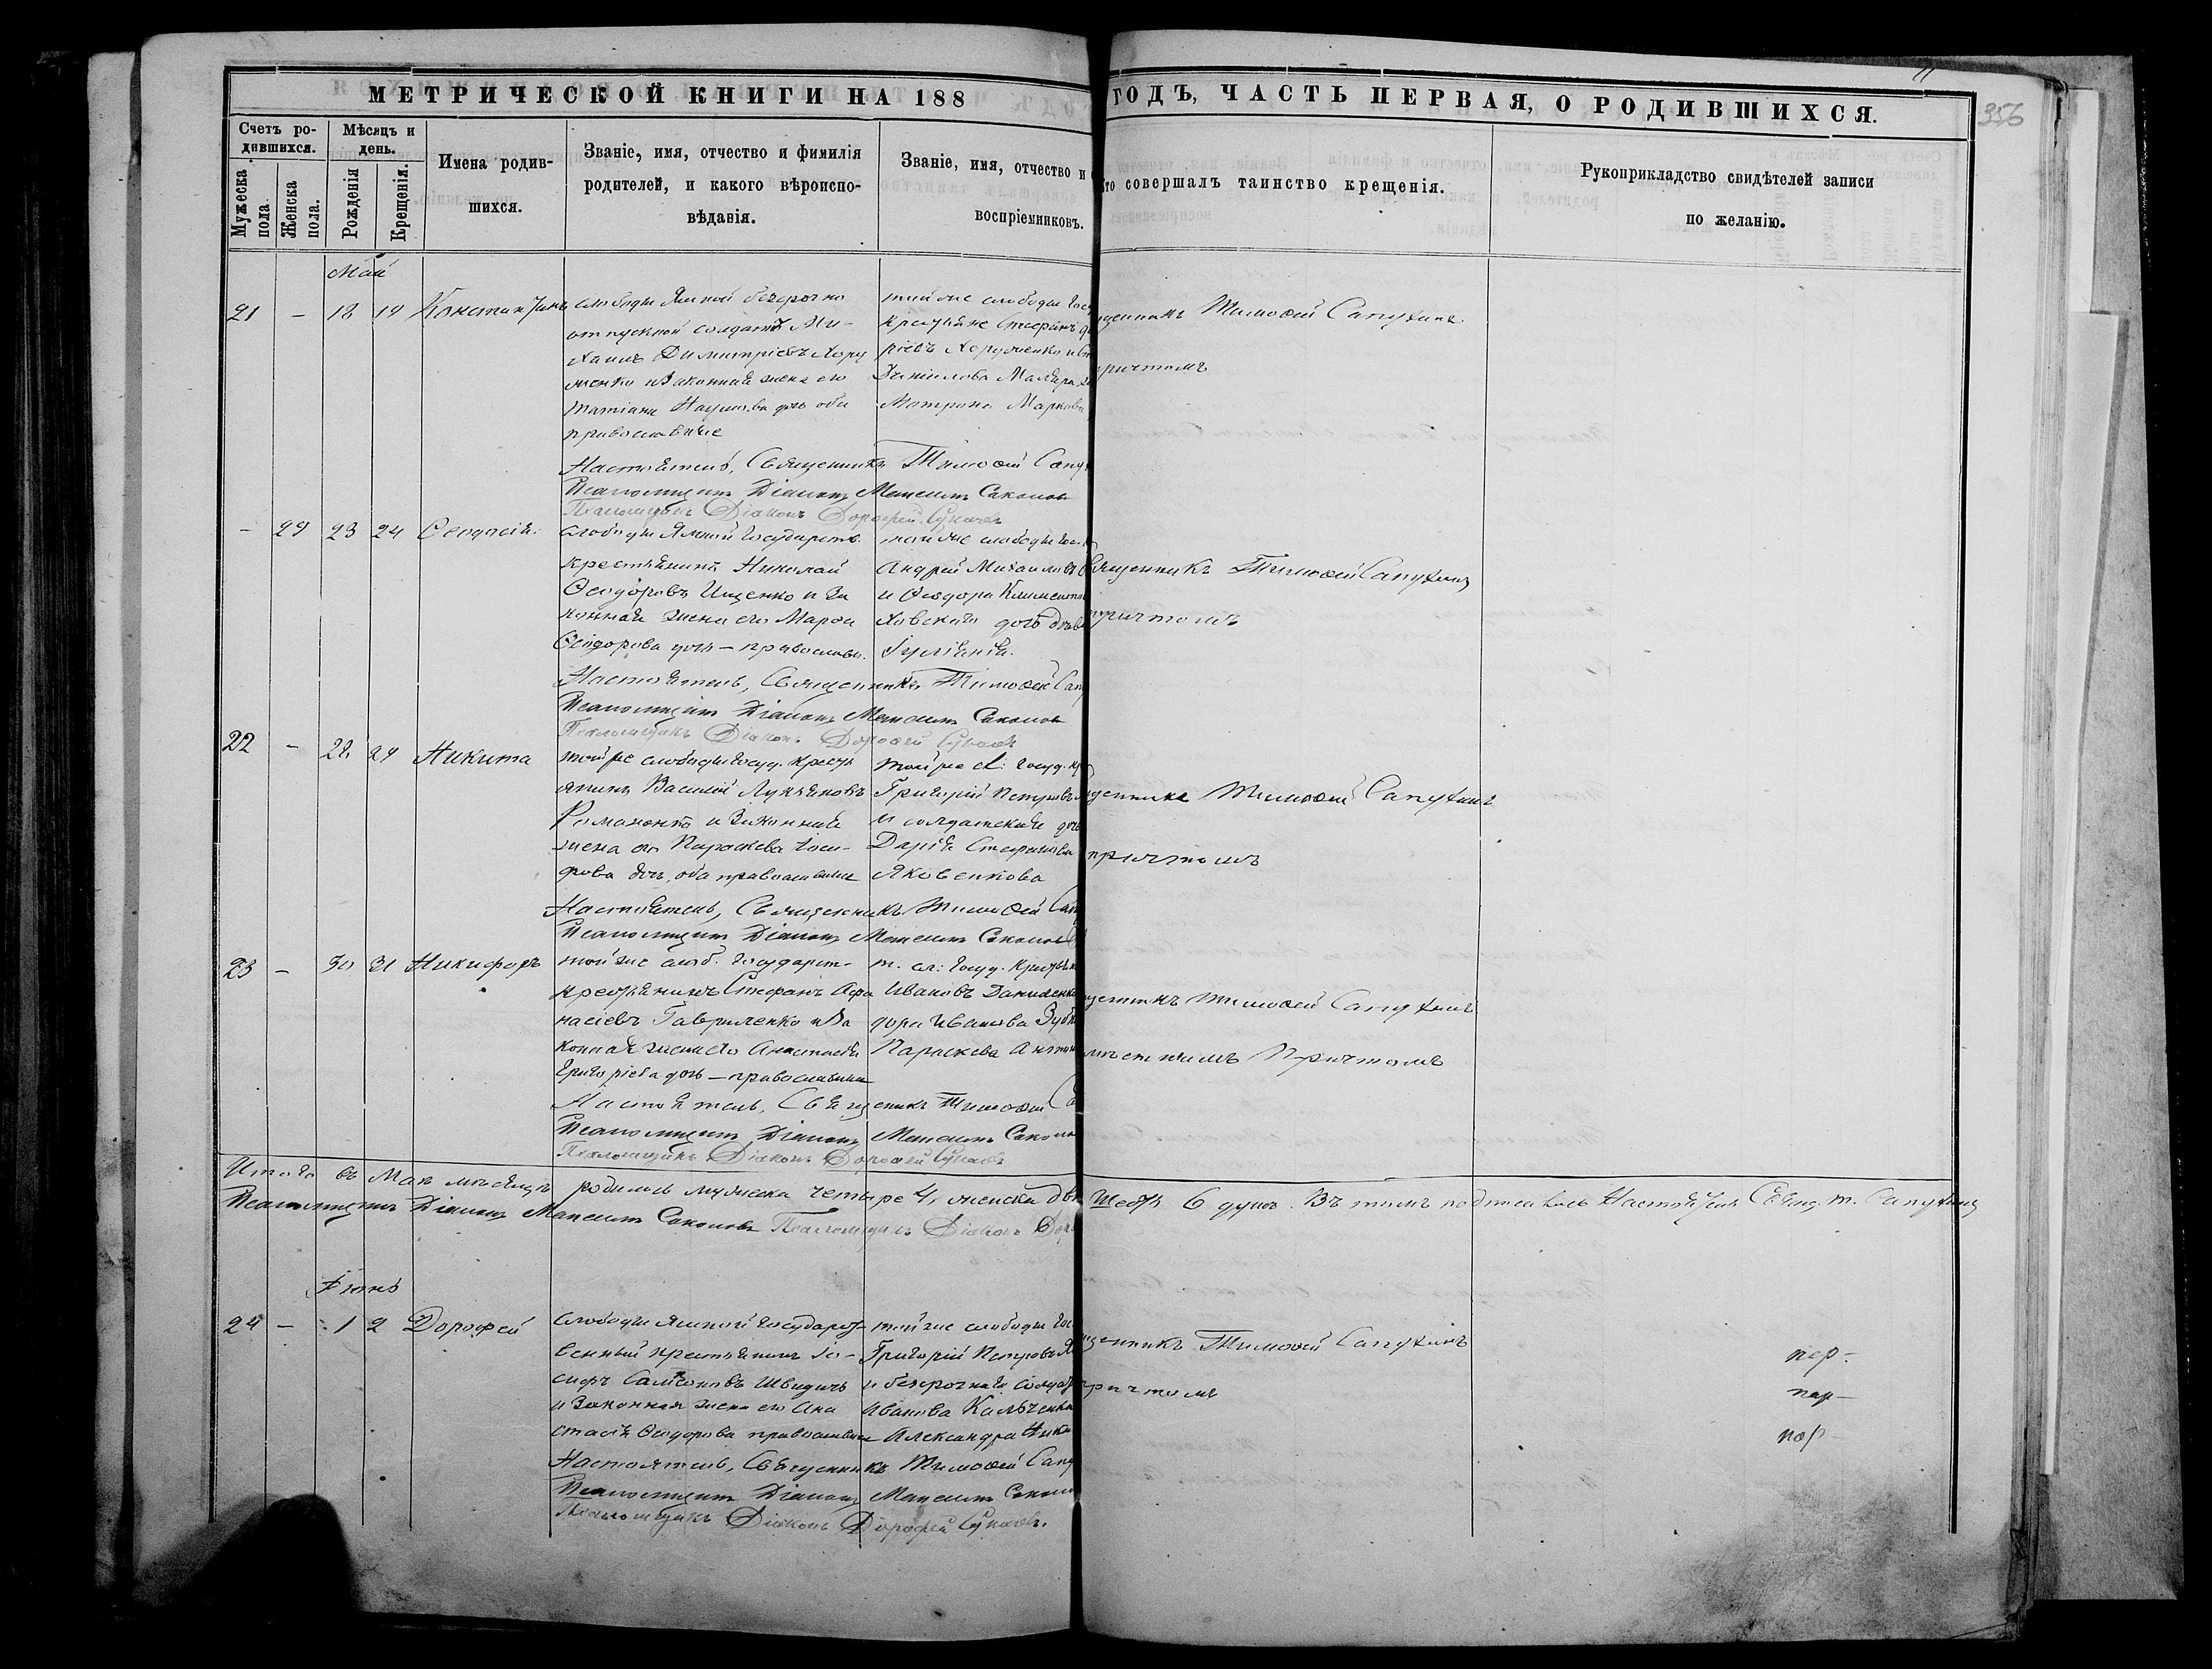 МЕТРИЧЕСКОЙ КНИГИ НА 188
ГОДЪ, ЧАСТЬ ПЕРВАЯ, О РОДИВШИХСЯ.
11
356
Счетъ ро-
дившихся.
Мужеска
пола.
Женска
пола.
Мѣсяцъ и
день.
Рожденія
Крещенія.
Имена родив-
шихся.
Званіе, имя, отчество и фимилія
родителей, и какого вѣроиспо-
вѣданія.
Званіе, имя, отчество и
воспріемниковъ.
то совершалъ таинство крещенія.
Рукоприкладство свидѣтелей записи
по желанію.
Май
21 – 18 19 Константинъ
слободы Ямной безсрочно
отпускной солдатъ Ми-
хаилъ Димитріевъ Хору
женко и законная жена его
Татіана Наумова дочь оба
православные
той же слободы Гос
Крестьяне Стефанъ
ріевъ Хоруженко
Матрона Маркова
щенникъ Тимофей Сапухинъ
причтомъ
Настоятель, Священникъ Тимофей Сапу
Псаломщикъ Діаконъ
Псаломщикъ Діаконъ Дорофей
– 29 23 24 Феодосія
слободы Ямной Государств.
крестьянинъ Николай
Феодоровъ Ищенко и за
конная жена его Марфа
Феодорова дочь – православн.
той же слободы Гос
Андрей Михаиловъ
и Феодора Климентов
ховскаго дочь
Іуліанія.
священникъ Тимофей Сапухинъ
причтомъ
Настоятель, Священникъ Тимофей Сап
Псаломщикъ Діаконъ
Псаломщикъ Діаконъ Дорофей
22 – 22 24 Никита
той же слободы Госуд. крест
янинъ Василій Лукьяновъ
Романенко и законная
жена его Параскева Іоси-
фова дочь, оба православные
той же сл: Госуд. кр
Григорій Петровъ
и солдатская дочь
Дарія Стефанова
Яковенкова
щенникъ Тимофей Сапухинъ
причтомъ
Настоятель, Священникъ Тимофей Сап
Псаломщикъ Діаконъ
23 – 30 31 Никифоръ
той же слоб. Государст-
крестьянинъ Стефанъ Афа
насіевъ Гавриленко и за
конная жена его Анастасія
Григоріева дочь – православные
т. сл: Госуд. Крест
Ивановъ Даниленко
дора Иванова
Параскева Антон
щенникъ Тимофей Сапухинъ
мѣстнымъ Причтомъ
Настоятель, Священникъ Тимофей Са
Псаломщикъ Діаконъ
Псаломщикъ Діаконъ Дорофей
Итого въ Маѣ мѣсяцѣ родилось мужеска четыре 4, женска два
6 душъ. Въ томъ подписались Настоятель Свящ. Т. Сапухинъ
Псаломщикъ Діаконъ
Псаломщикъ Діаконъ Дор
Іюнь
24 – 1 2 Дорофей
Слободы Ямной Государст-
венный крестьянинъ Іо-
сифъ Самсоновъ Швидичъ
и законная жена его Ана
стасія Феодорова православные
той же слободы Гос
Григорій Петровъ
и безсрочнаго солдат
Иванова Кальченка
Александра Ники
щенникъ Тимофей Сапухинъ
причтомъ
Настоятель, Священникъ Тимофей Сапу
Псаломщикъ Діаконъ
Псаломщикъ Діаконъ Дорофей